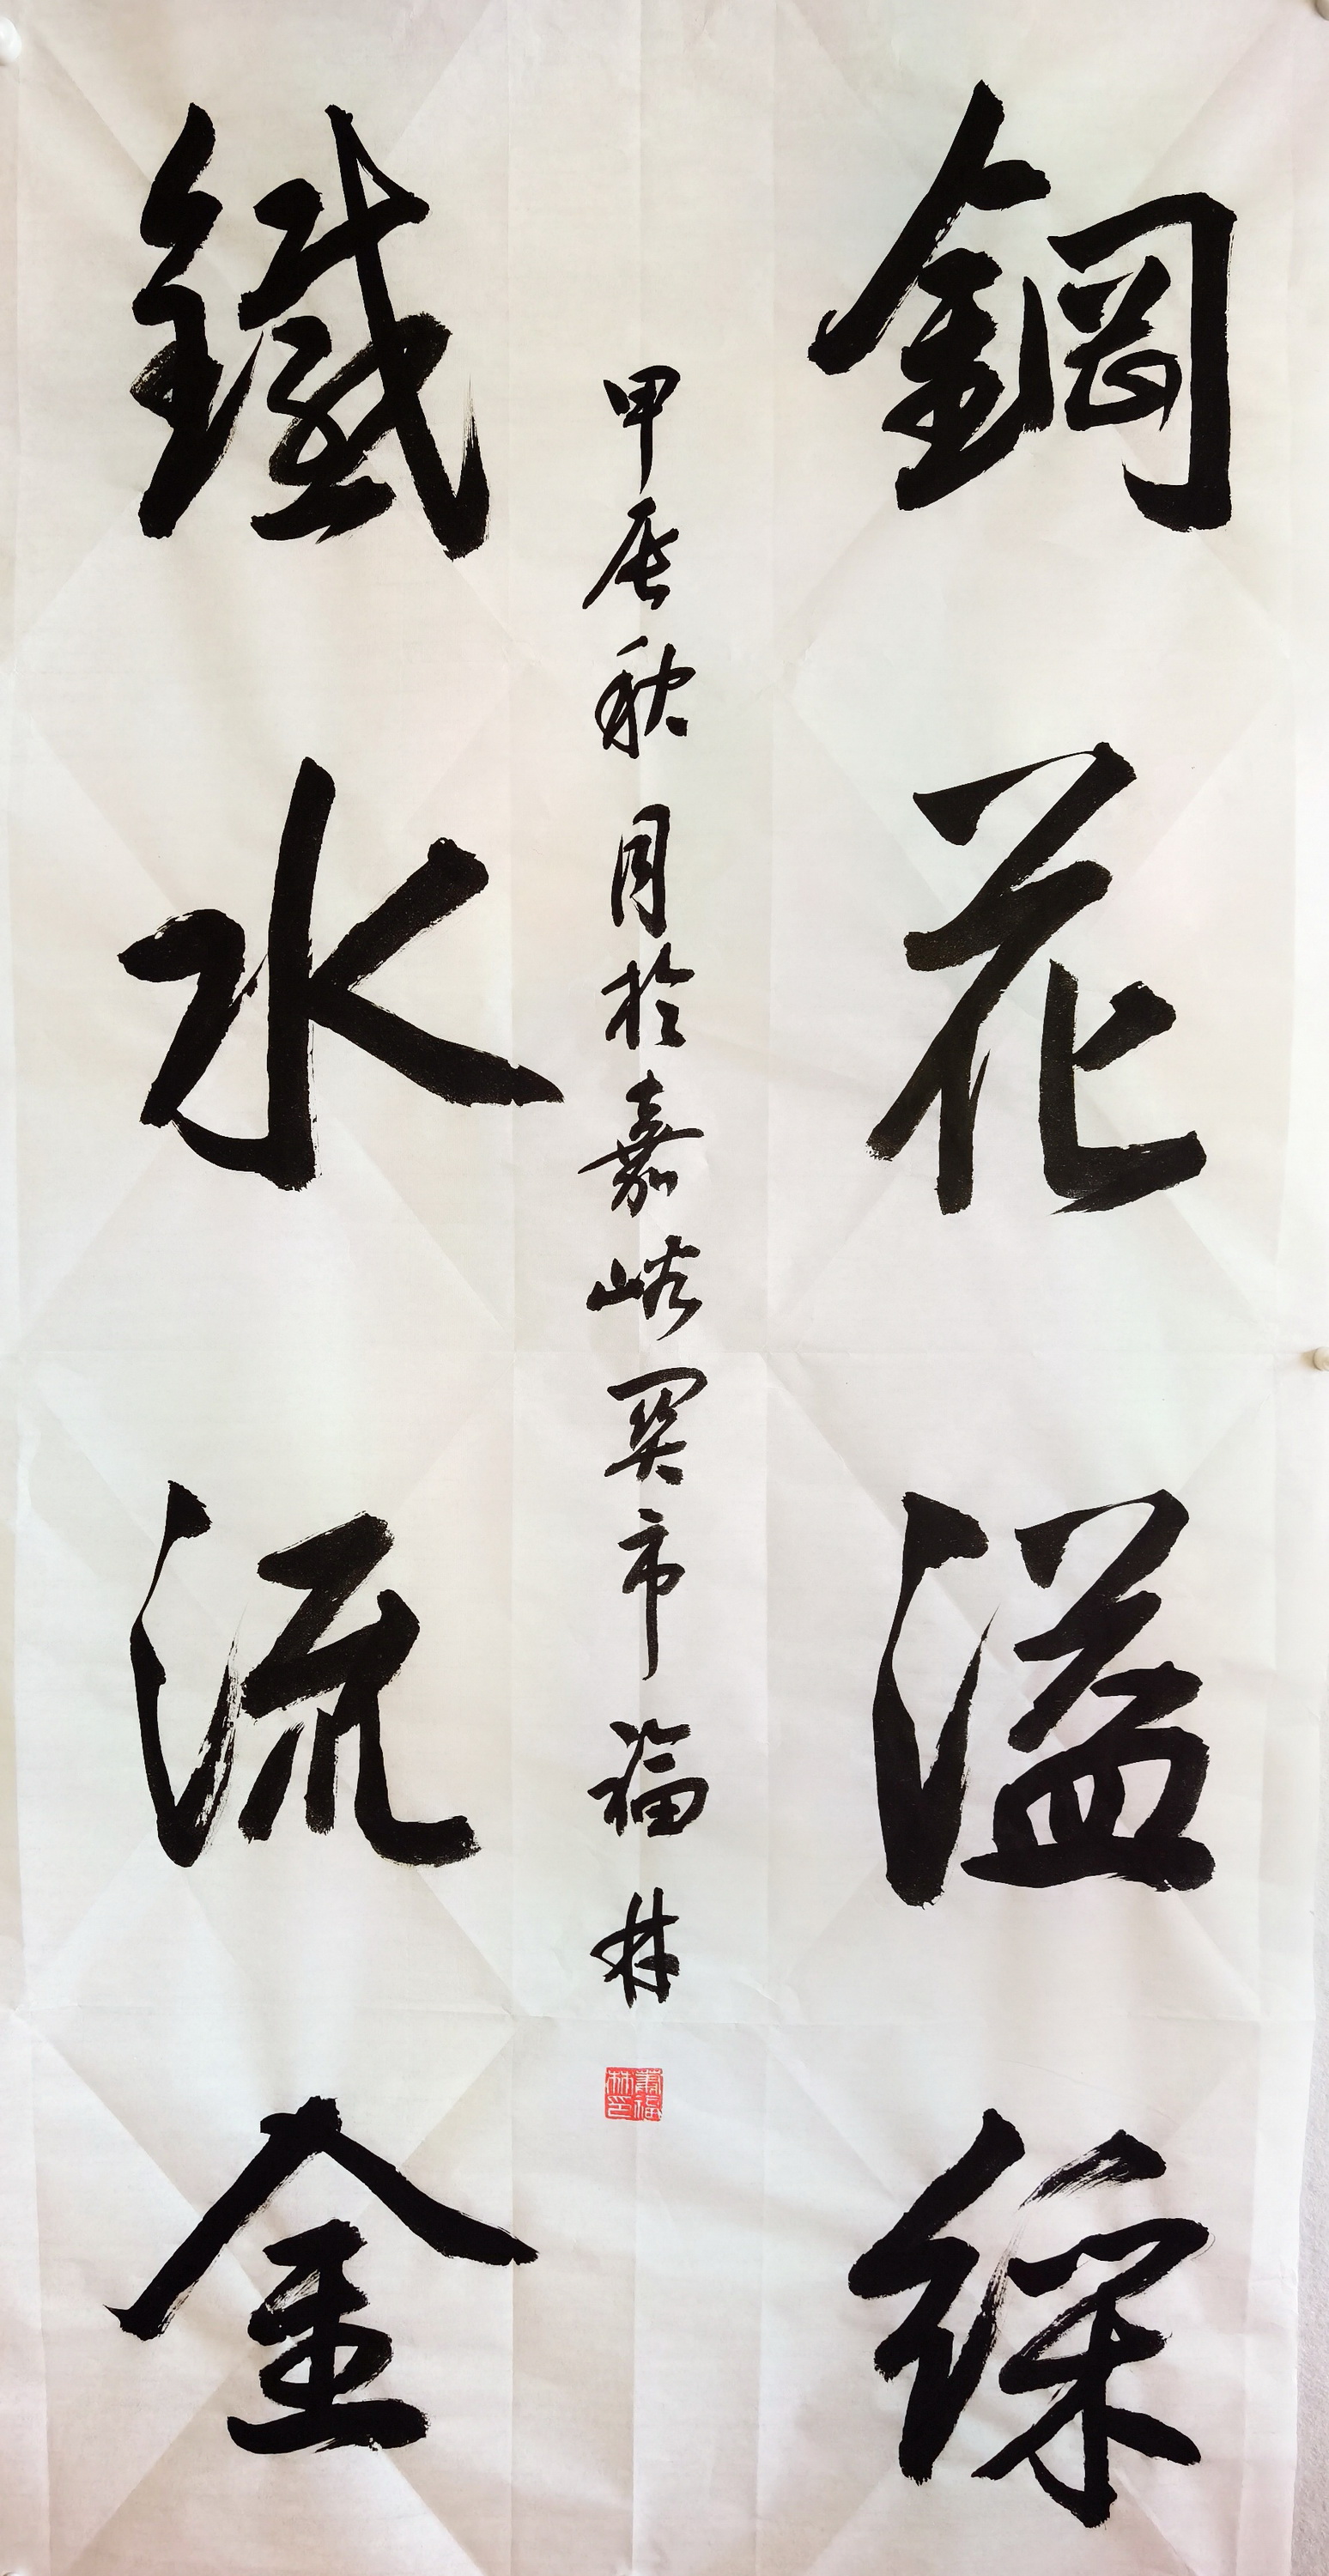 鋼花溢綵
鐵水流金
甲辰秋月於嘉峪关市福林
蕭福林印